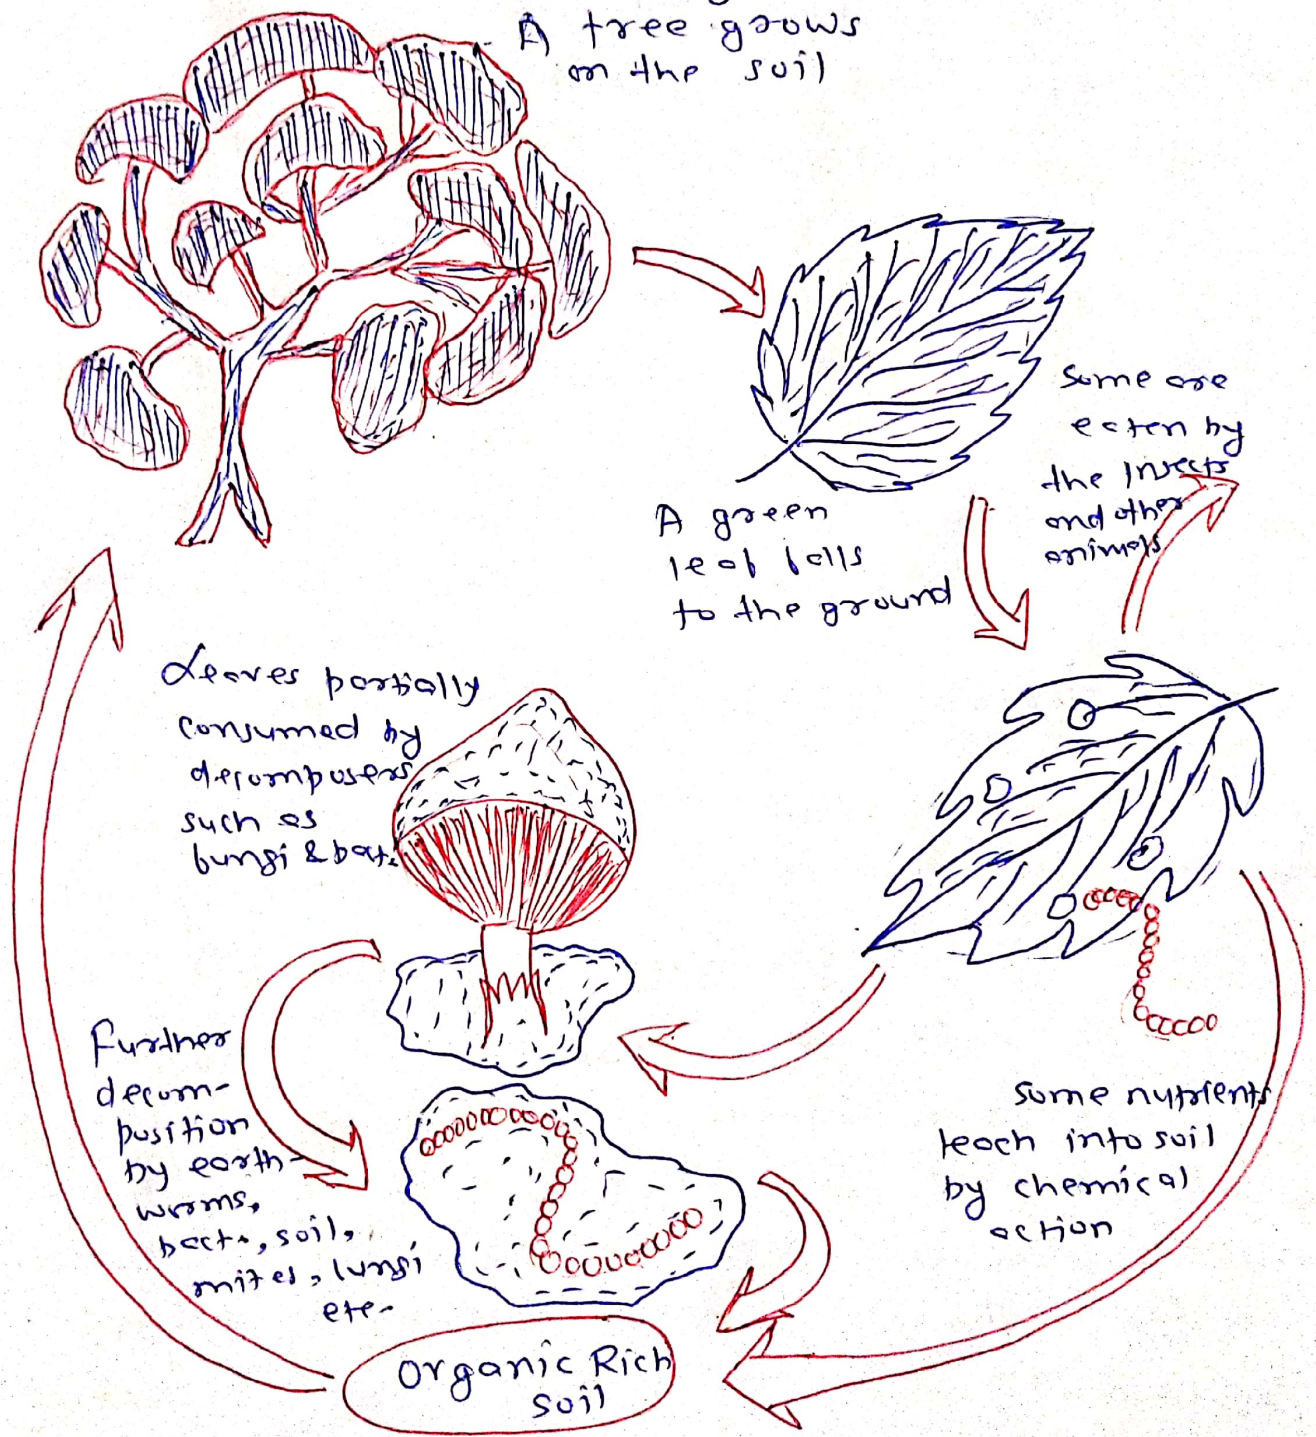 A tree grows
on the soil
Some are
eaten by
the Insects
and other
animals
A green
leaf falls
to the ground
Leaves partially
consumed by
decomposers
such as
fungi & bat.
Further
decom-
position
by earth-
worms,
bact., soil,
mites, fungi
etc.
Some nutrients
leach into soil
by chemical
action
Organic Rich
Soil